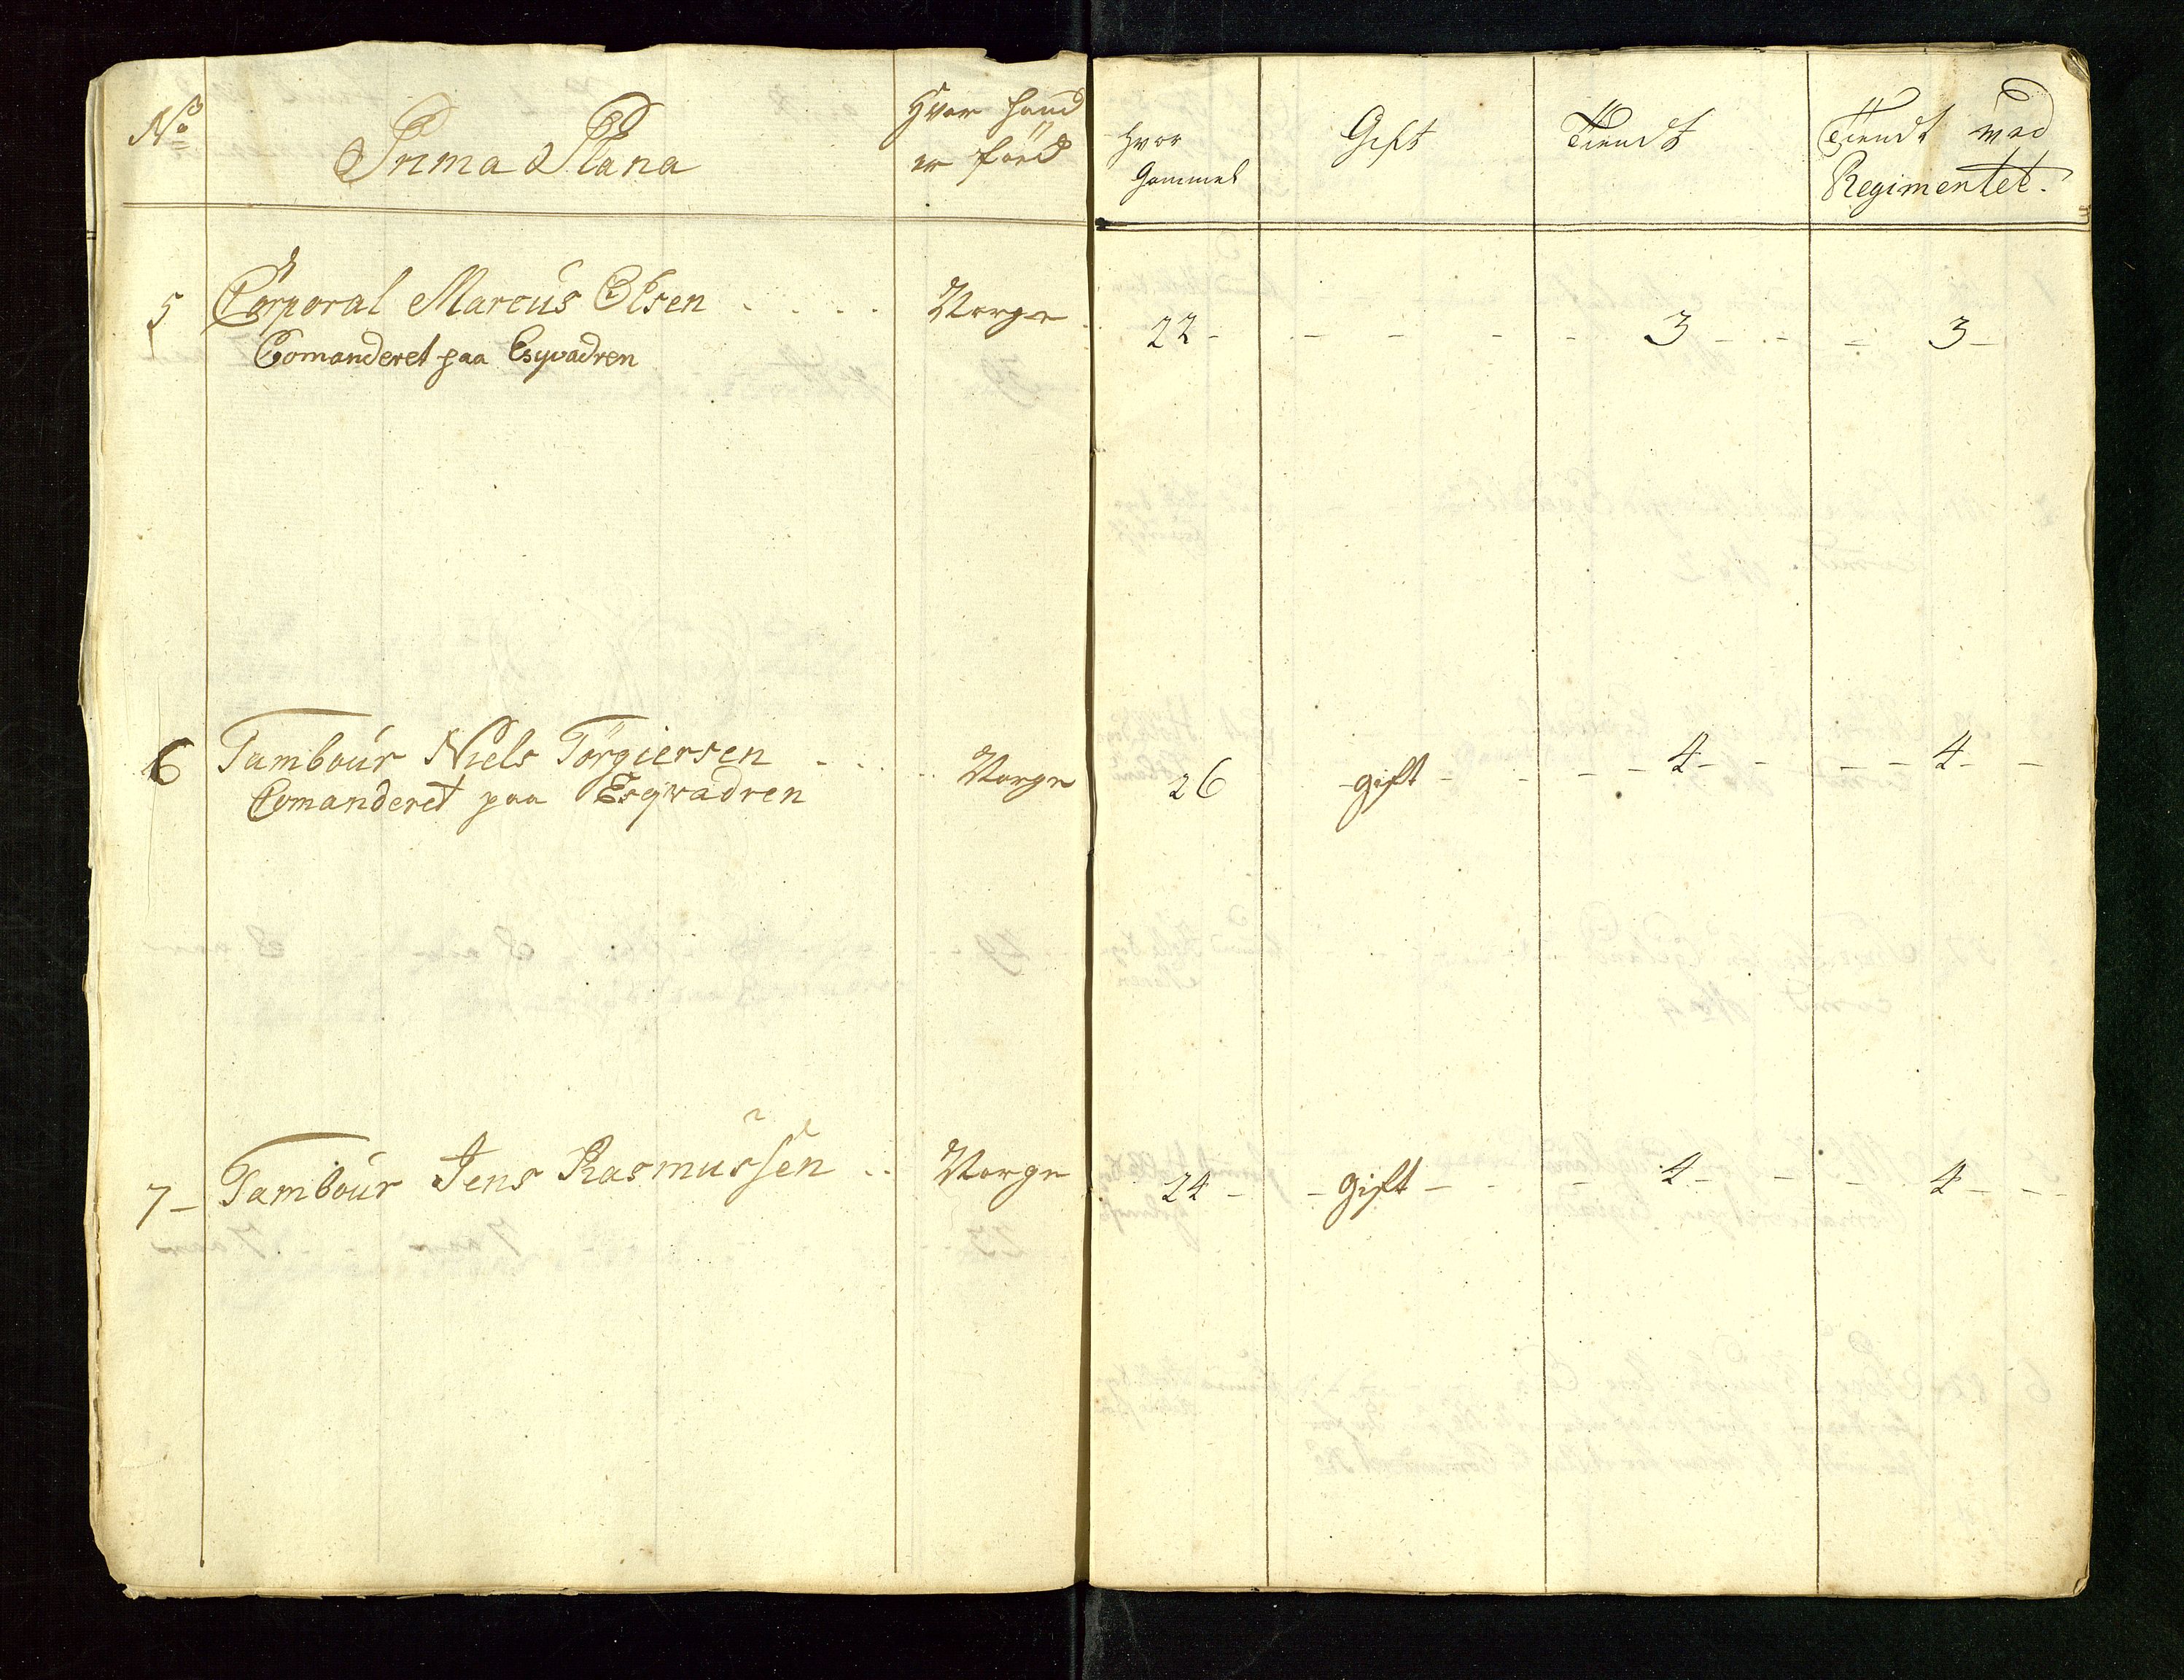 No
Prima Plana
Hvor hand
er föed
Hvor
Gammel
Gift
Tiendt
Tiendt ved
Regimentet.
5 Corporal Marcus Olsen - - - - Norge 22 - - - - - - 3 - - - 3 -
Comanderet paa Esqvadren
6 Tambour Niels Torgiersen - - - - Norge 26 - gift - - - - 4 - - - - 4 - -
Comanderet paa Esqvadren
7 - Tambour Jens Rasmussen - - Norge 24 - - gift - - - 4 - - - 4 - - -